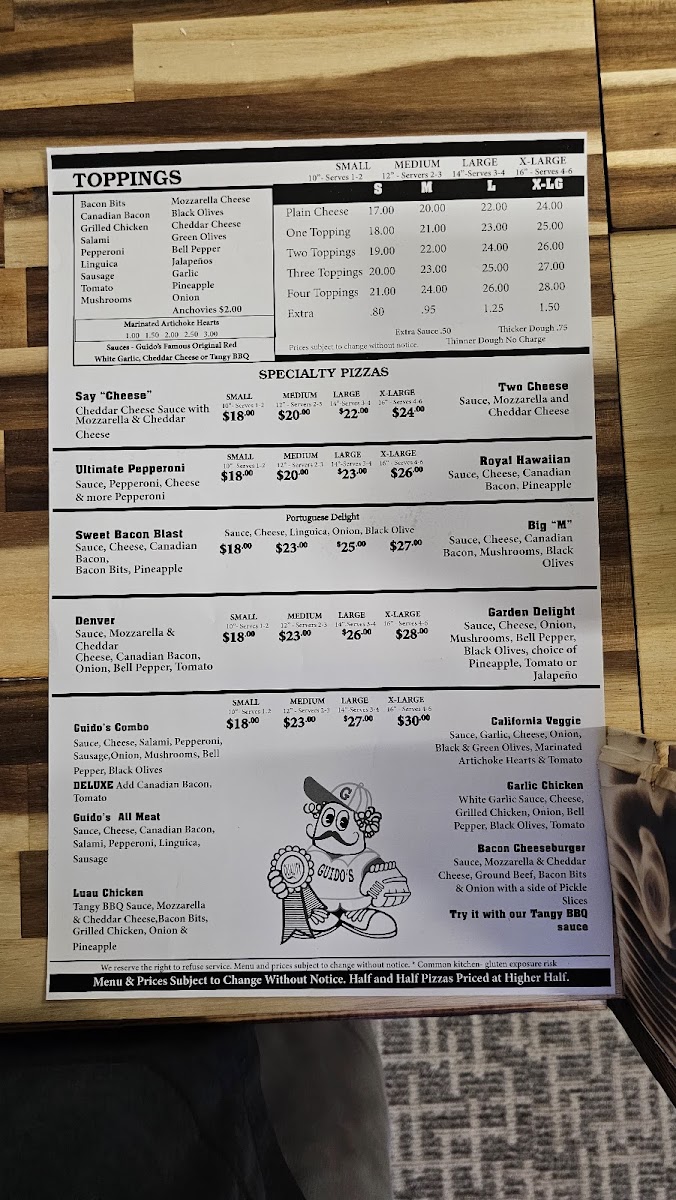 TOPPINGS
SMALL MEDIUM LARGE X-LARGE
10"- Serves 1-2 12" - Servers 2-3 14"-Serves 3-4 16" - Serves 4-6
S M L X-LG
Bacon Bits
Canadian Bacon
Grilled Chicken
Salami
Pepperoni
Linguica
Sausage
Tomato
Mushrooms
Mozzarella Cheese
Black Olives
Cheddar Cheese
Green Olives
Bell Pepper
Jalapeños
Garlic
Pineapple
Onion
Anchovies $2.00
Marinated Artichoke Hearts
1.00 1.50 2.00 2.50 3.00
Sauces - Guido's Famous Original Red
White Garlic, Cheddar Cheese or Tangy BBQ
Plain Cheese 17.00 20.00 22.00 24.00
One Topping 18.00 21.00 23.00 25.00
Two Toppings 19.00 22.00 24.00 26.00
Three Toppings 20.00 23.00 25.00 27.00
Four Toppings 21.00 24.00 26.00 28.00
Extra .80 .95 1.25 1.50
Extra Sauce .50 Thicker Dough .75
Prices subject to change without notice. Thinner Dough No Charge
SPECIALTY PIZZAS
Say "Cheese"
Cheddar Cheese Sauce with
Mozzarella & Cheddar
Cheese
SMALL MEDIUM LARGE X-LARGE
10"- Serves 1-2 12" - Servers 2-3 14"-Serves 3-4 16" - Serves 4-6
$18.00 $20.00 $22.00 $24.00
Two Cheese
Sauce, Mozzarella and
Cheddar Cheese
Ultimate Pepperoni
Sauce, Pepperoni, Cheese
& more Pepperoni
SMALL MEDIUM LARGE X-LARGE
10"- Serves 1-2 12" - Servers 2-3 14"-Serves 3-4 16" - Serves 4-6
$18.00 $20.00 $23.00 $26.00
Royal Hawaiian
Sauce, Cheese, Canadian
Bacon, Pineapple
Sweet Bacon Blast
Sauce, Cheese, Canadian
Bacon,
Bacon Bits, Pineapple
Portuguese Delight
Sauce, Cheese, Linguica, Onion, Black Olive
$18.00 $23.00 $25.00 $27.00
Big "M"
Sauce, Cheese, Canadian
Bacon, Mushrooms, Black
Olives
Denver
Sauce, Mozzarella &
Cheddar
Cheese, Canadian Bacon,
Onion, Bell Pepper, Tomato
SMALL MEDIUM LARGE X-LARGE
10"- Serves 1-2 12" - Servers 2-3 14"-Serves 3-4 16" - Serves 4-6
$18.00 $23.00 $26.00 $28.00
Garden Delight
Sauce, Cheese, Onion,
Mushrooms, Bell Pepper,
Black Olives, choice of
Pineapple, Tomato or
Jalapeño
SMALL MEDIUM LARGE X-LARGE
10"- Serves 1-2 12" - Servers 2-3 14"-Serves 3-4 16" - Serves 4-6
$18.00 $23.00 $27.00 $30.00
Guido's Combo
Sauce, Cheese, Salami, Pepperoni,
Sausage,Onion, Mushrooms, Bell
Pepper, Black Olives
DELUXE Add Canadian Bacon,
Tomato
Guido's All Meat
Sauce, Cheese, Canadian Bacon,
Salami, Pepperoni, Linguica,
Sausage
Luau Chicken
Tangy BBQ Sauce, Mozzarella
& Cheddar Cheese,Bacon Bits,
Grilled Chicken, Onion &
Pineapple
G
QUALITY
GUIDO'S
California Veggie
Sauce, Garlic, Cheese, Onion,
Black & Green Olives, Marinated
Artichoke Hearts & Tomato
Garlic Chicken
White Garlic Sauce, Cheese,
Grilled Chicken, Onion, Bell
Pepper, Black Olives, Tomato
Bacon Cheeseburger
Sauce, Mozzarella & Cheddar
Cheese, Ground Beef, Bacon Bits
& Onion with a side of Pickle
Slices
Try it with our Tangy BBQ
sauce
We reserve the right to refuse service. Menu and prices subject to change without notice. * Common kitchen- gluten exposure risk
Menu & Prices Subject to Change Without Notice. Half and Half Pizzas Priced at Higher Half.